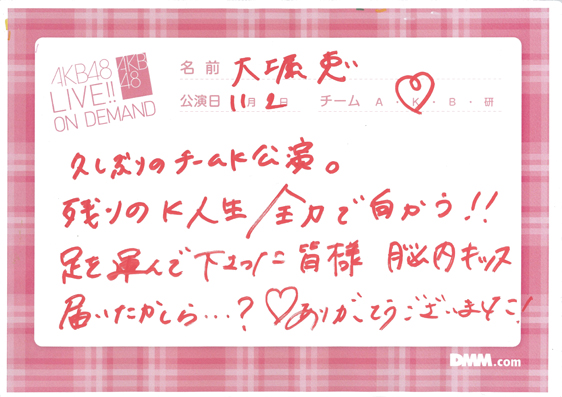 AKB48
LIVE!!
ON DEMAND
AKB
48
名前 大堀恵
公演日 11月2日 チーム A・K・B・研
久しぶりのチームK公演。
残りのK人生全力で向かう!!
足を運んで下さった皆様 脳内キッス
届いたかしら…?♡ありがとうございました!
DMM.com